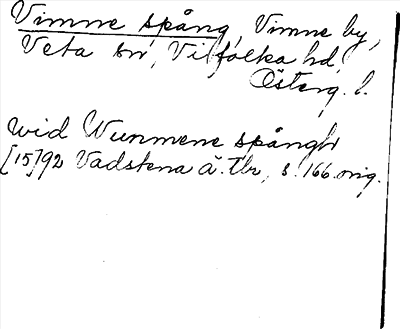 Vimne spång, Vimne by,
Veta sn, Vifolka hd,
Österg. l.
wid Wunmene spångh
[15]92 Vadstena ä. Tbr, s. 166. orig.